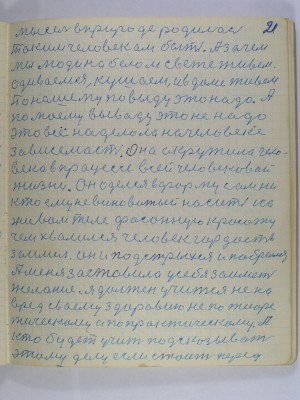 21
мысем в природе родилас
таким человекам быть. А зачем
мы люди на белом свете живем.
одиваемся, кушаем, и в доме живем
По нашему по выду это надо. А
по моему вываду это не надо
это всё наделола на человеке
зависемость. Она окружила чело-
века в працессе всей человековай
жизни. Он оделся в форму сам ни
кто ему не виноватый насить на
живом теле фасонную красоту
чем хвалился человек гордасть
заимел. он и подстрыхся и побрился
А меня заставила у себя заимет
желание. я должен учится не на
вред сваему здоравию не по теоре-
тическому а по практическому. А
кто будет учит подсказывать
этаму делу если стоит перед